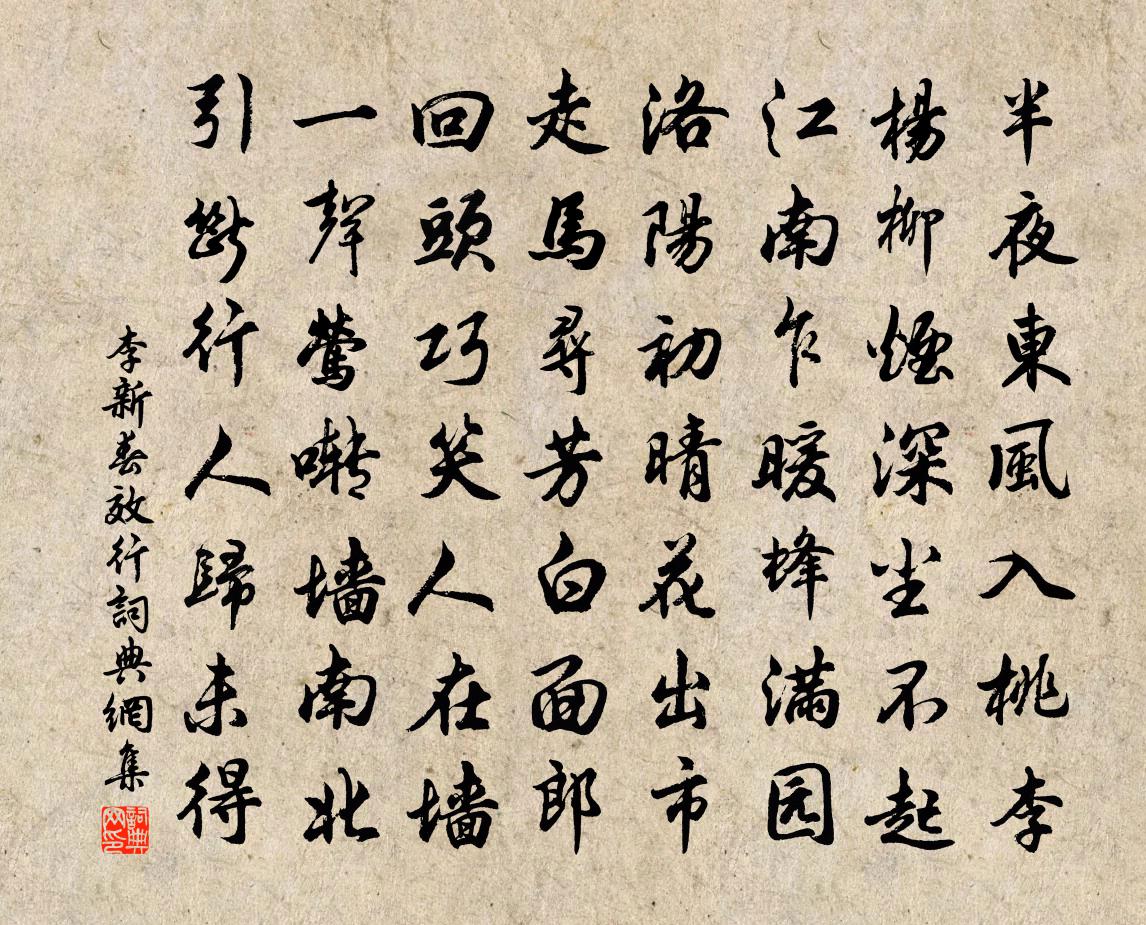 半夜東風入桃李
楊柳煙深尘不起
江南乍暖蜂满园
洛陽初晴花出市
走馬尋芳白面郎
回頭巧笑人在墙
一聲鶯囀墙南北
引斷行人歸未得
李新春效行詞典網集
詞典网印